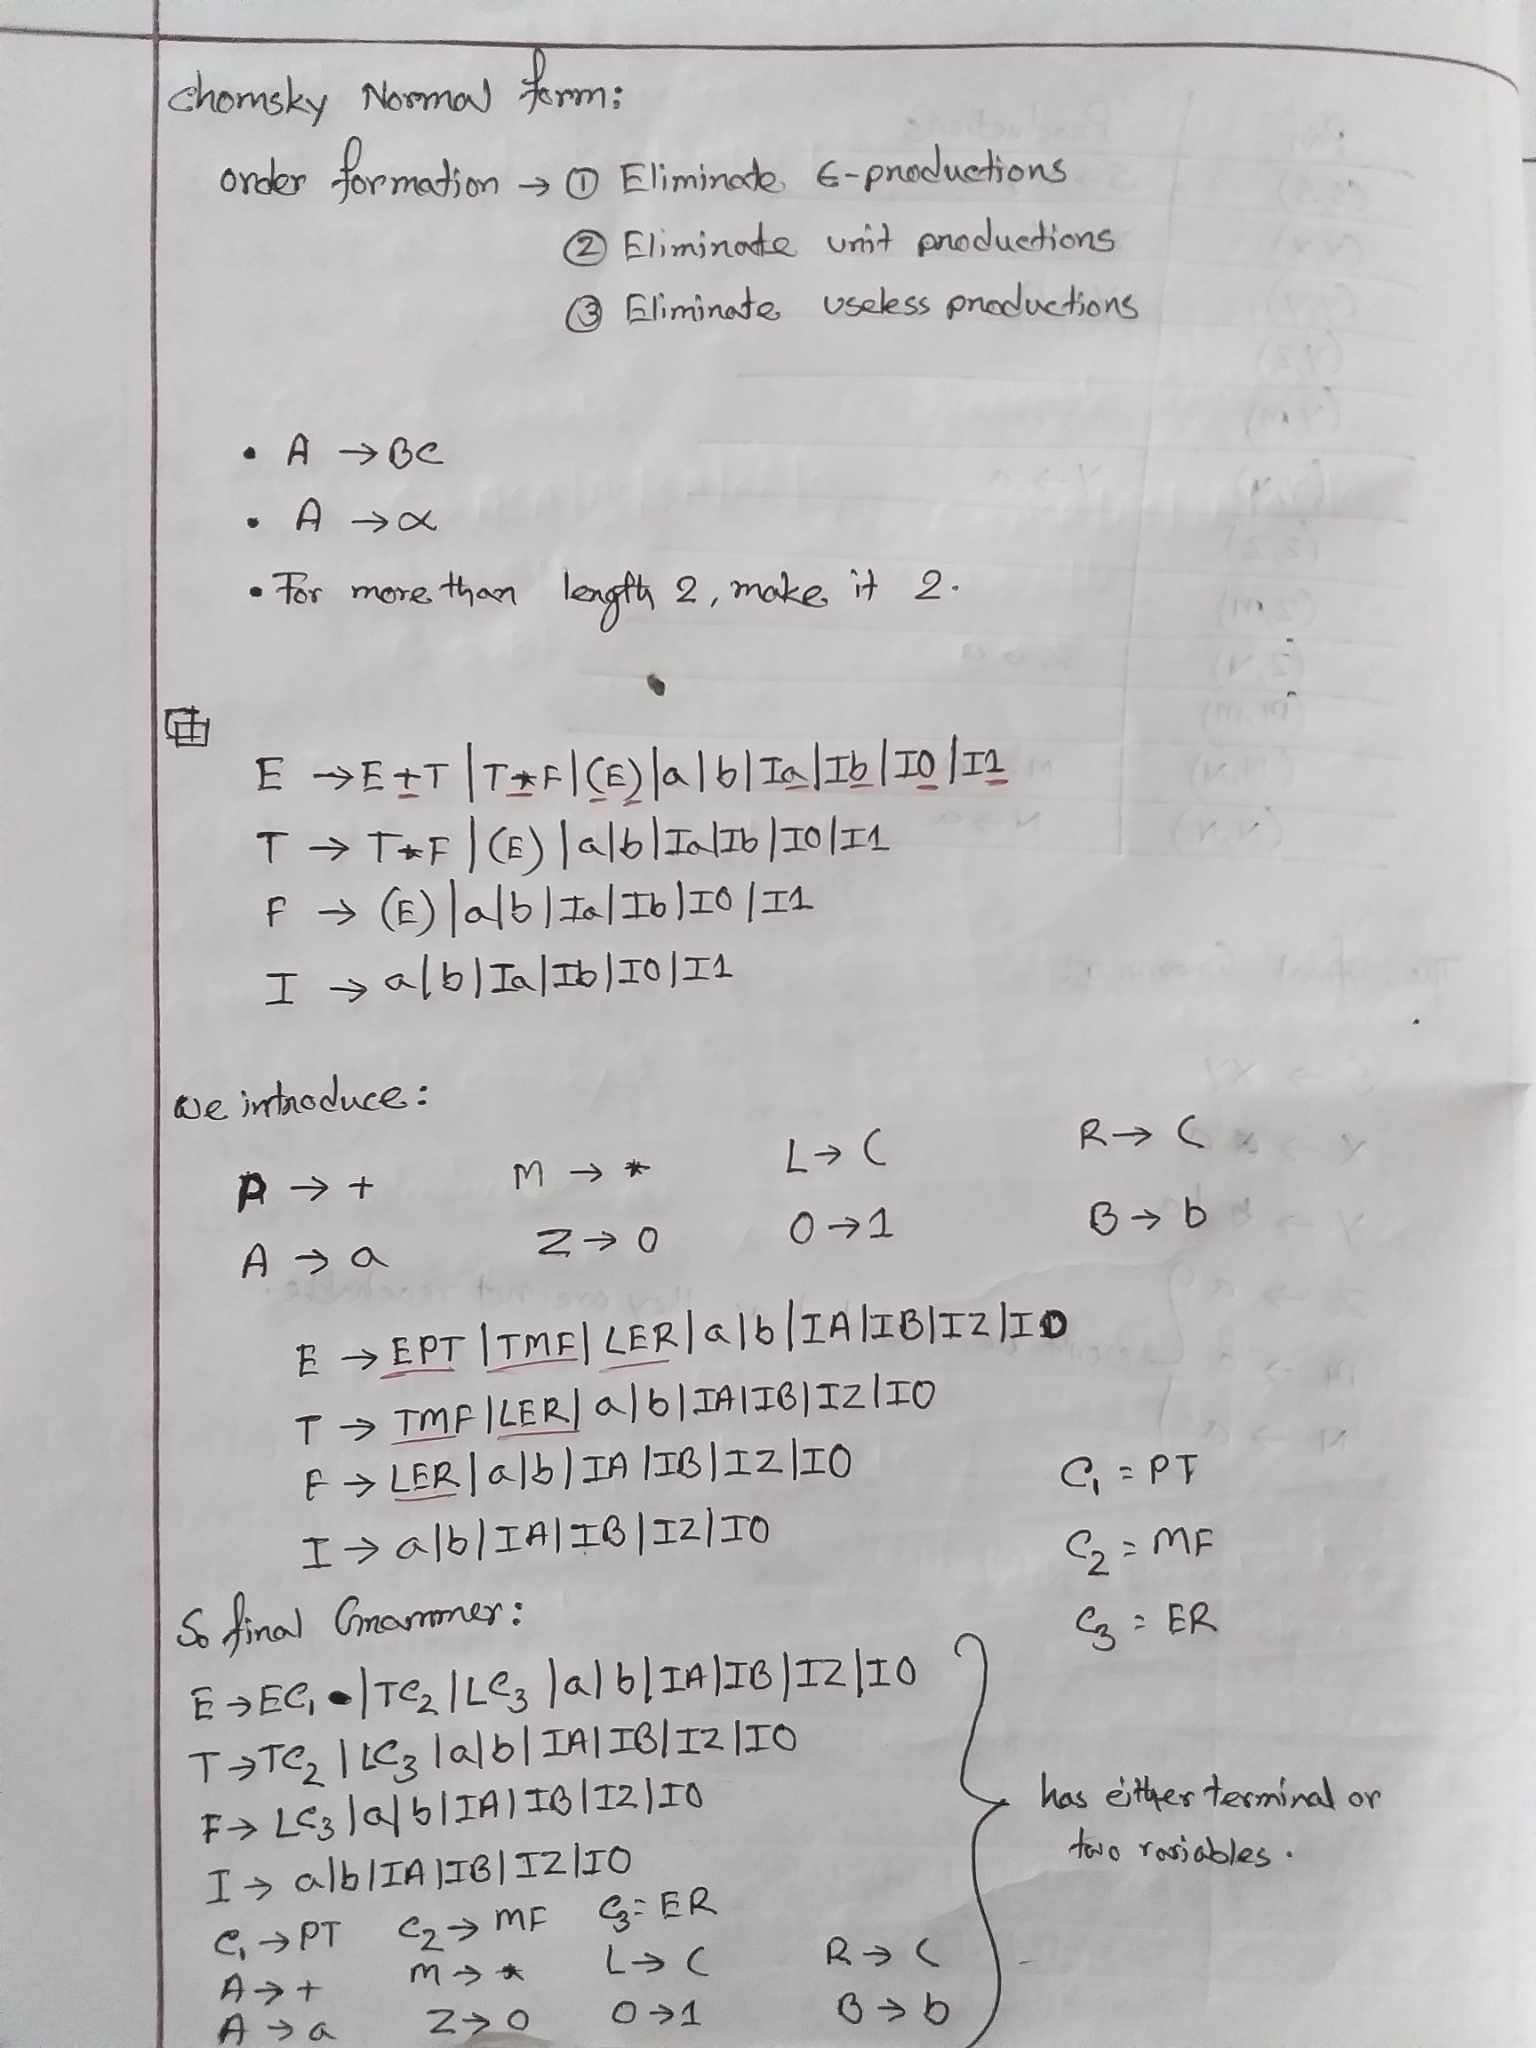 Chomsky Normal form:
order formation → ① Eliminate ε-productions
② Eliminate unit productions
③ Eliminate useless productions
• A → BC
• A → α
• For more than length 2, make it 2.
E → E+T | T*F | (E) | a | b | Ia | Ib | I0 | I1
T → T*F | (E) | a | b | Ia | Ib | I0 | I1
F → (E) | a | b | Ia | Ib | I0 | I1
I → a | b | Ia | Ib | I0 | I1
we introduce:
P → + M → * L → ( R → (
A → a Z → 0 O → 1 B → b
E → EPT | TMF | LER | a | b | IA | IB | IZ | IO
T → TMF | LER | a | b | IA | IB | IZ | IO
F → LER | a | b | IA | IB | IZ | IO
C₁ = PT
I → a | b | IA | IB | IZ | IO
C₂ = MF
C₃ = ER
So final Grammer:
E → EC₁ | TC₂ | LC₃ | a | b | IA | IB | IZ | IO
T → TC₂ | LC₃ | a | b | IA | IB | IZ | IO
F → LC₃ | a | b | IA | IB | IZ | IO
I → a | b | IA | IB | IZ | IO
has either terminal or
two variables.
C₁ → PT C₂ → MF C₃ = ER
A → + M → * L → ( R → (
A → a Z → 0 O → 1 B → b